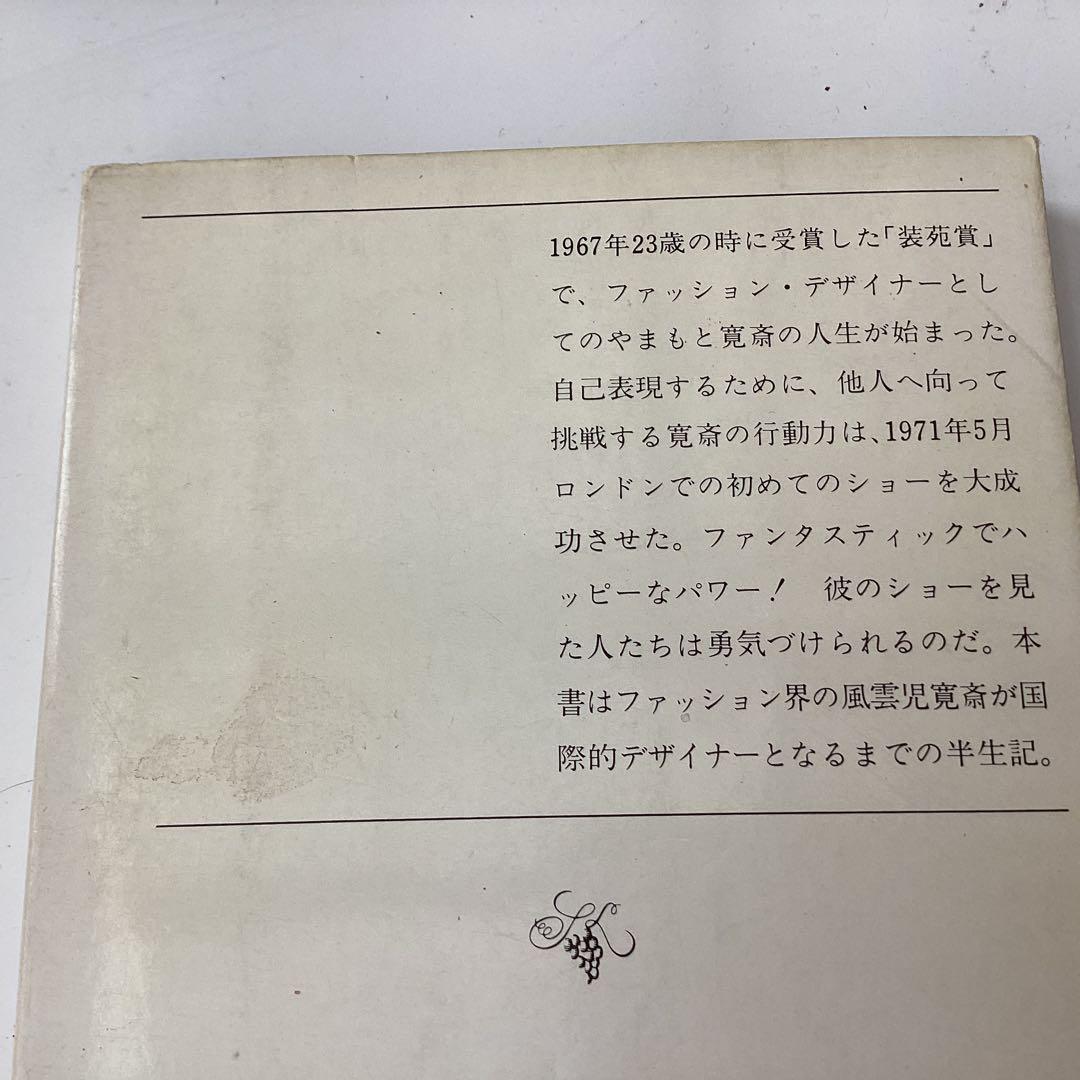 1967年23歳の時に受賞した「装苑賞」
で、ファッション・デザイナーとし
てのやまもと寛斎の人生が始まった。
自己表現するために、他人へ向って
挑戦する寛斎の行動力は、1971年5月
ロンドンでの初めてのショーを大成
功させた。ファンタスティックでハ
ッピーなパワー！　彼のショーを見
た人たちは勇気づけられるのだ。本
書はファッション界の風雲児寛斎が国
際的デザイナーとなるまでの半生記。
SK